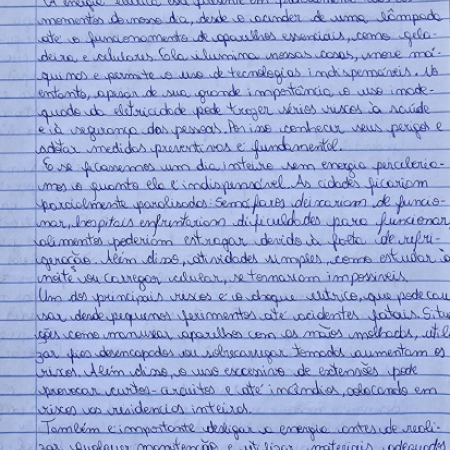 A energia elétrica está presente em praticamente todos os
momentos do nosso dia, desde o acender de uma lâmpada
até o funcionamento de aparelhos essenciais, como gela-
deira e celulares. Ela ilumina nossas casas, move má-
quinas e permite o uso de tecnologias indispensáveis. No
entanto, apesar de sua grande importância, o uso inade-
quado da eletricidade pode trazer sérios riscos à saúde
e à segurança das pessoas. Por isso conhecer seus perigos e
adotar medidas preventivas e fundamental.
E se ficassemos um dia inteiro sem energia perceberia-
mos o quanto ela é indispensável. As cidades ficariam
parcialmente paralisadas: Semáforos deixariam de funcio-
nar, hospitais enfrentariam dificuldades para funcionar,
alimentos poderiam estragar devido à falta de refri-
geração. Além disso, atividades simples, como estudar à
noite ou carregar celular, se tornariam impossíveis.
Um dos principais riscos e o choque elétrico, que pode cau
sar desde pequenos ferimentos até acidentes fatais. Situa
ções como manusear aparelhos com as mãos molhadas, utili
zar fios desencapados ou sobrecarregar tomadas aumentam os
riscos. Além disso, o uso excessivo de extensões pode
provocar curtos-circuitos e até incêndios, colocando em
riscos as residencias inteiras.
Também e importante desligar a energia antes de reali-
zar qualquer manutenção e utilizar materiais adequados